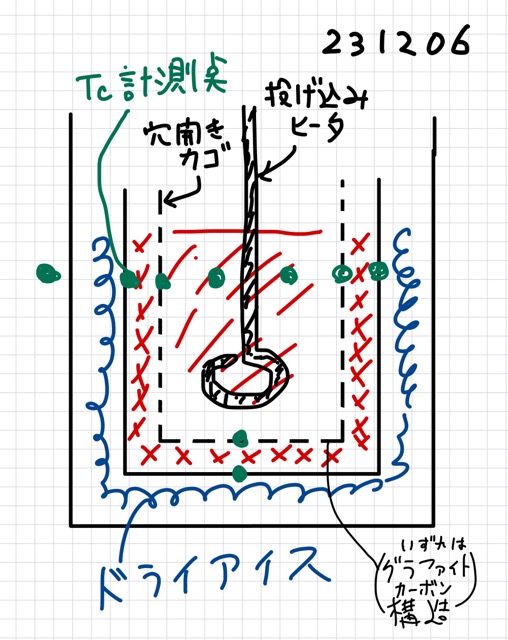 231206
Tc計測点
投げ込み
ヒータ
穴開き
カゴ
ドライアイス
いずれは
グラファイト
カーボン
構造